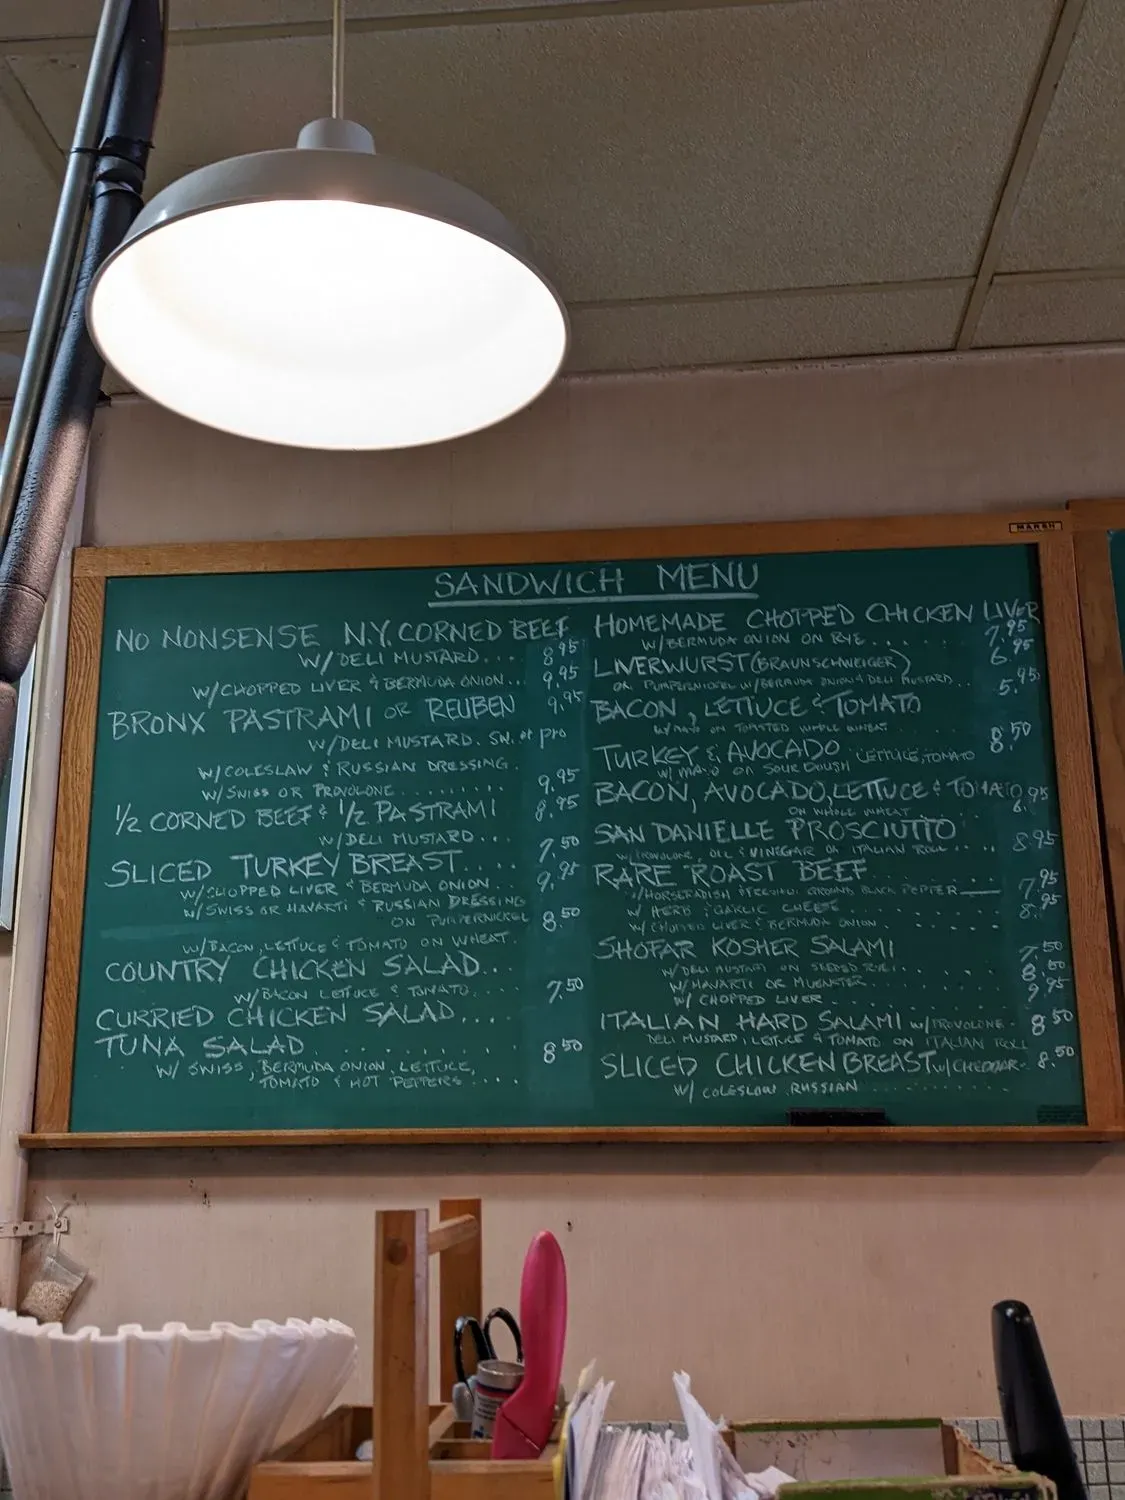 MARSH
SANDWICH MENU
NO NONSENSE N.Y. CORNED BEEF
W/DELI MUSTARD... 8.95
W/CHOPPED LIVER & BERMUDA ONION... 9.95
BRONX PASTRAMI OR REUBEN 9.95
W/DELI MUSTARD. SW. or pro
W/COLESLAW & RUSSIAN DRESSING.
W/SWISS OR PROVOLONE......... 9.95
1/2 CORNED BEEF & 1/2 PASTRAMI 8.95
W/DELI MUSTARD...
SLICED TURKEY BREAST... 7.50
W/CHOPPED LIVER & BERMUDA ONION.. 9.95
W/SWISS OR HAVARTI & RUSSIAN DRESSING
ON PUMPERNICKEL 8.50
W/BACON, LETTUCE & TOMATO ON WHEAT.
COUNTRY CHICKEN SALAD...
W/BACON LETTUCE & TOMATO.... 7.50
CURRIED CHICKEN SALAD....
TUNA SALAD......... 8.50
W/ SWISS, BERMUDA ONION, LETTUCE,
TOMATO & HOT PEPPERS....
HOMEMADE CHOPPED CHICKEN LIVER
W/BERMUDA ONION ON RYE...... 7.95
LIVERWURST (BRAUNSCHWEIGER) 6.95
ON PUMPERNICKEL W/BERMUDA ONION & DELI MUSTARD... 5.95
BACON, LETTUCE & TOMATO
W/MAYO ON TOASTED WHOLE WHEAT
TURKEY & AVOCADO LETTUCE, TOMATO 8.50
W/ MAYO ON SOUR DOUGH
BACON, AVOCADO, LETTUCE & TOMATO 6.95
ON WHOLE WHEAT
SAN DANIELLE PROSCIUTTO
W/PROVOLONE, OIL & VINEGAR ON ITALIAN ROLL.... 8.95
RARE ROAST BEEF
W/HORSERADISH & GROUND BLACK PEPPER 7.95
W/ HERB & GARLIC CHEESE 8.95
W/ CHOPPED LIVER & BERMUDA ONION.
SHOFAR KOSHER SALAMI
W/DELI MUSTARD ON SEEDED RYE. 7.50
W/HAVARTI OR MUENSTER. 8.50
W/ CHOPPED LIVER 9.95
ITALIAN HARD SALAMI W/PROVOLONE- 8.50
DELI MUSTARD, LETTUCE & TOMATO ON ITALIAN ROLL
SLICED CHICKEN BREAST W/CHEDDAR- 8.50
W/ COLESLAW, RUSSIAN